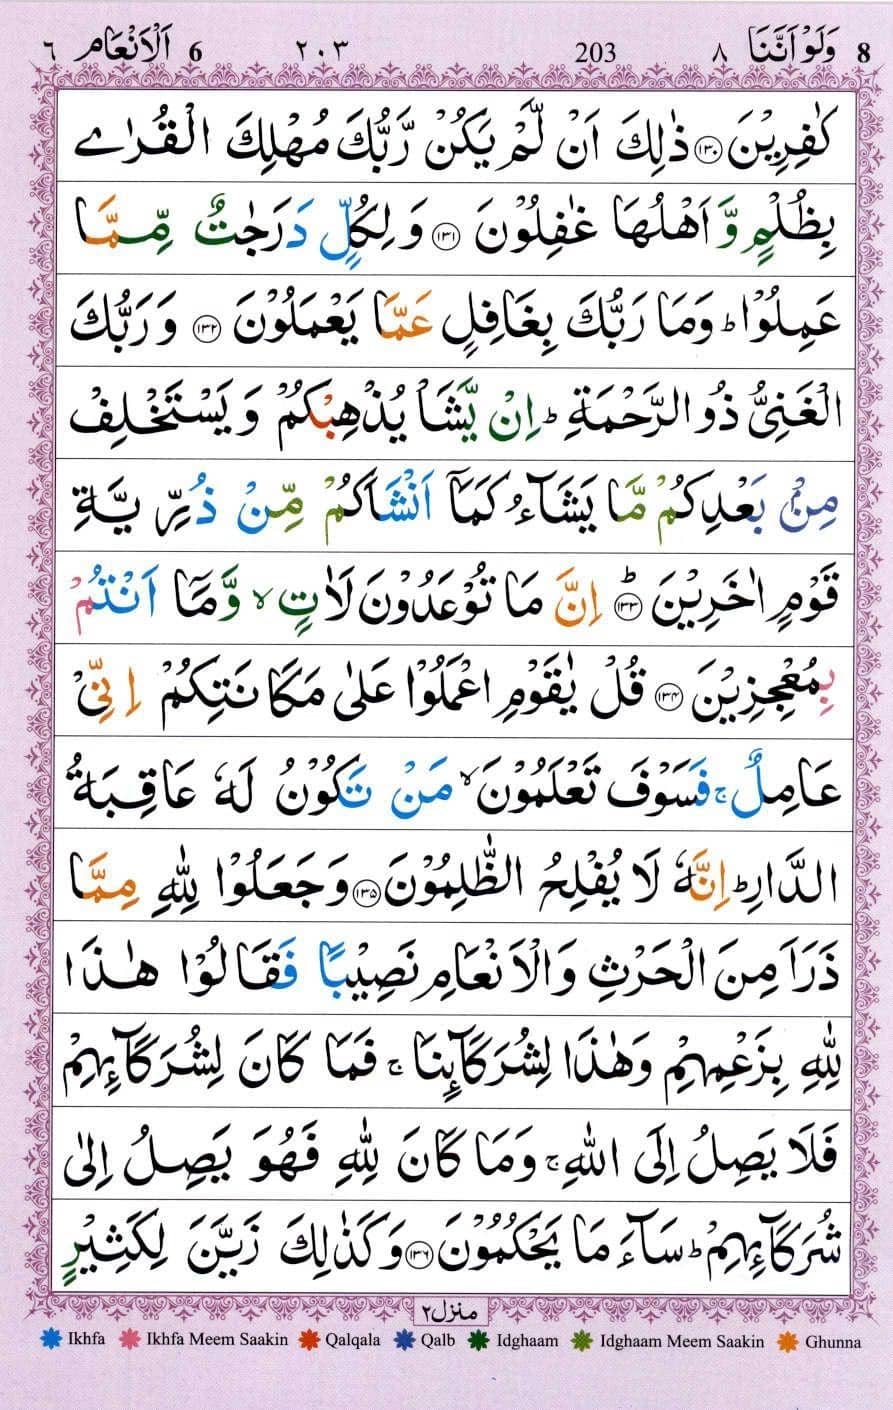 8 وَلَوْ اَنَّنَا ٨ 203 ٢٠٣ 6 اَلْاَنْعَام ٦
كٰفِرِيْنَ ۝١٣٠ ذٰلِكَ اَنْ لَّمْ يَكُنْ رَّبُّكَ مُهْلِكَ الْقُرٰى
بِظُلْمٍ وَّ اَهْلُهَا غٰفِلُوْنَ ۝١٣١ وَ لِكُلٍّ دَرَجٰتٌ مِّمَّا
عَمِلُوْا ؕ وَمَا رَبُّكَ بِغَافِلٍ عَمَّا يَعْمَلُوْنَ ۝١٣٢ وَ رَبُّكَ
الْغَنِىُّ ذُو الرَّحْمَةِ ؕ اِنْ يَّشَاْ يُذْهِبْكُمْ وَ يَسْتَخْلِفْ
مِنْۢ بَعْدِكُمْ مَّا يَشَآءُ كَمَاۤ اَنْشَاَكُمْ مِّنْ ذُرِّيَّةِ
قَوْمٍ اٰخَرِيْنَ ؕ ۝١٣٣ اِنَّ مَا تُوْعَدُوْنَ لَاٰتٍ ۙ وَّ مَاۤ اَنْتُمْ
بِمُعْجِزِيْنَ ۝١٣٤ قُلْ يٰقَوْمِ اعْمَلُوْا عَلٰى مَكَانَتِكُمْ اِنِّىْ
عَامِلٌ ۚ فَسَوْفَ تَعْلَمُوْنَ ۙ مَنْ تَكُوْنُ لَهٗ عَاقِبَةُ
الدَّارِ ؕ اِنَّهٗ لَا يُفْلِحُ الظّٰلِمُوْنَ ۝١٣٥ وَ جَعَلُوْا لِلّٰهِ مِمَّا
ذَرَاَ مِنَ الْحَرْثِ وَالْاَنْعَامِ نَصِيْبًا فَقَالُوْا هٰذَا
لِلّٰهِ بِزَعْمِهِمْ وَهٰذَا لِشُرَكَآئِنَا ۚ فَمَا كَانَ لِشُرَكَآئِهِمْ
فَلَا يَصِلُ اِلَى اللّٰهِ ۚ وَمَا كَانَ لِلّٰهِ فَهُوَ يَصِلُ اِلٰى
شُرَكَآئِهِمْ ؕ سَآءَ مَا يَحْكُمُوْنَ ۝١٣٦ وَكَذٰلِكَ زَيَّنَ لِكَثِيْرٍ
منزل٢
Ikhfa Ikhfa Meem Saakin Qalqala Qalb Idghaam Idghaam Meem Saakin Ghunna